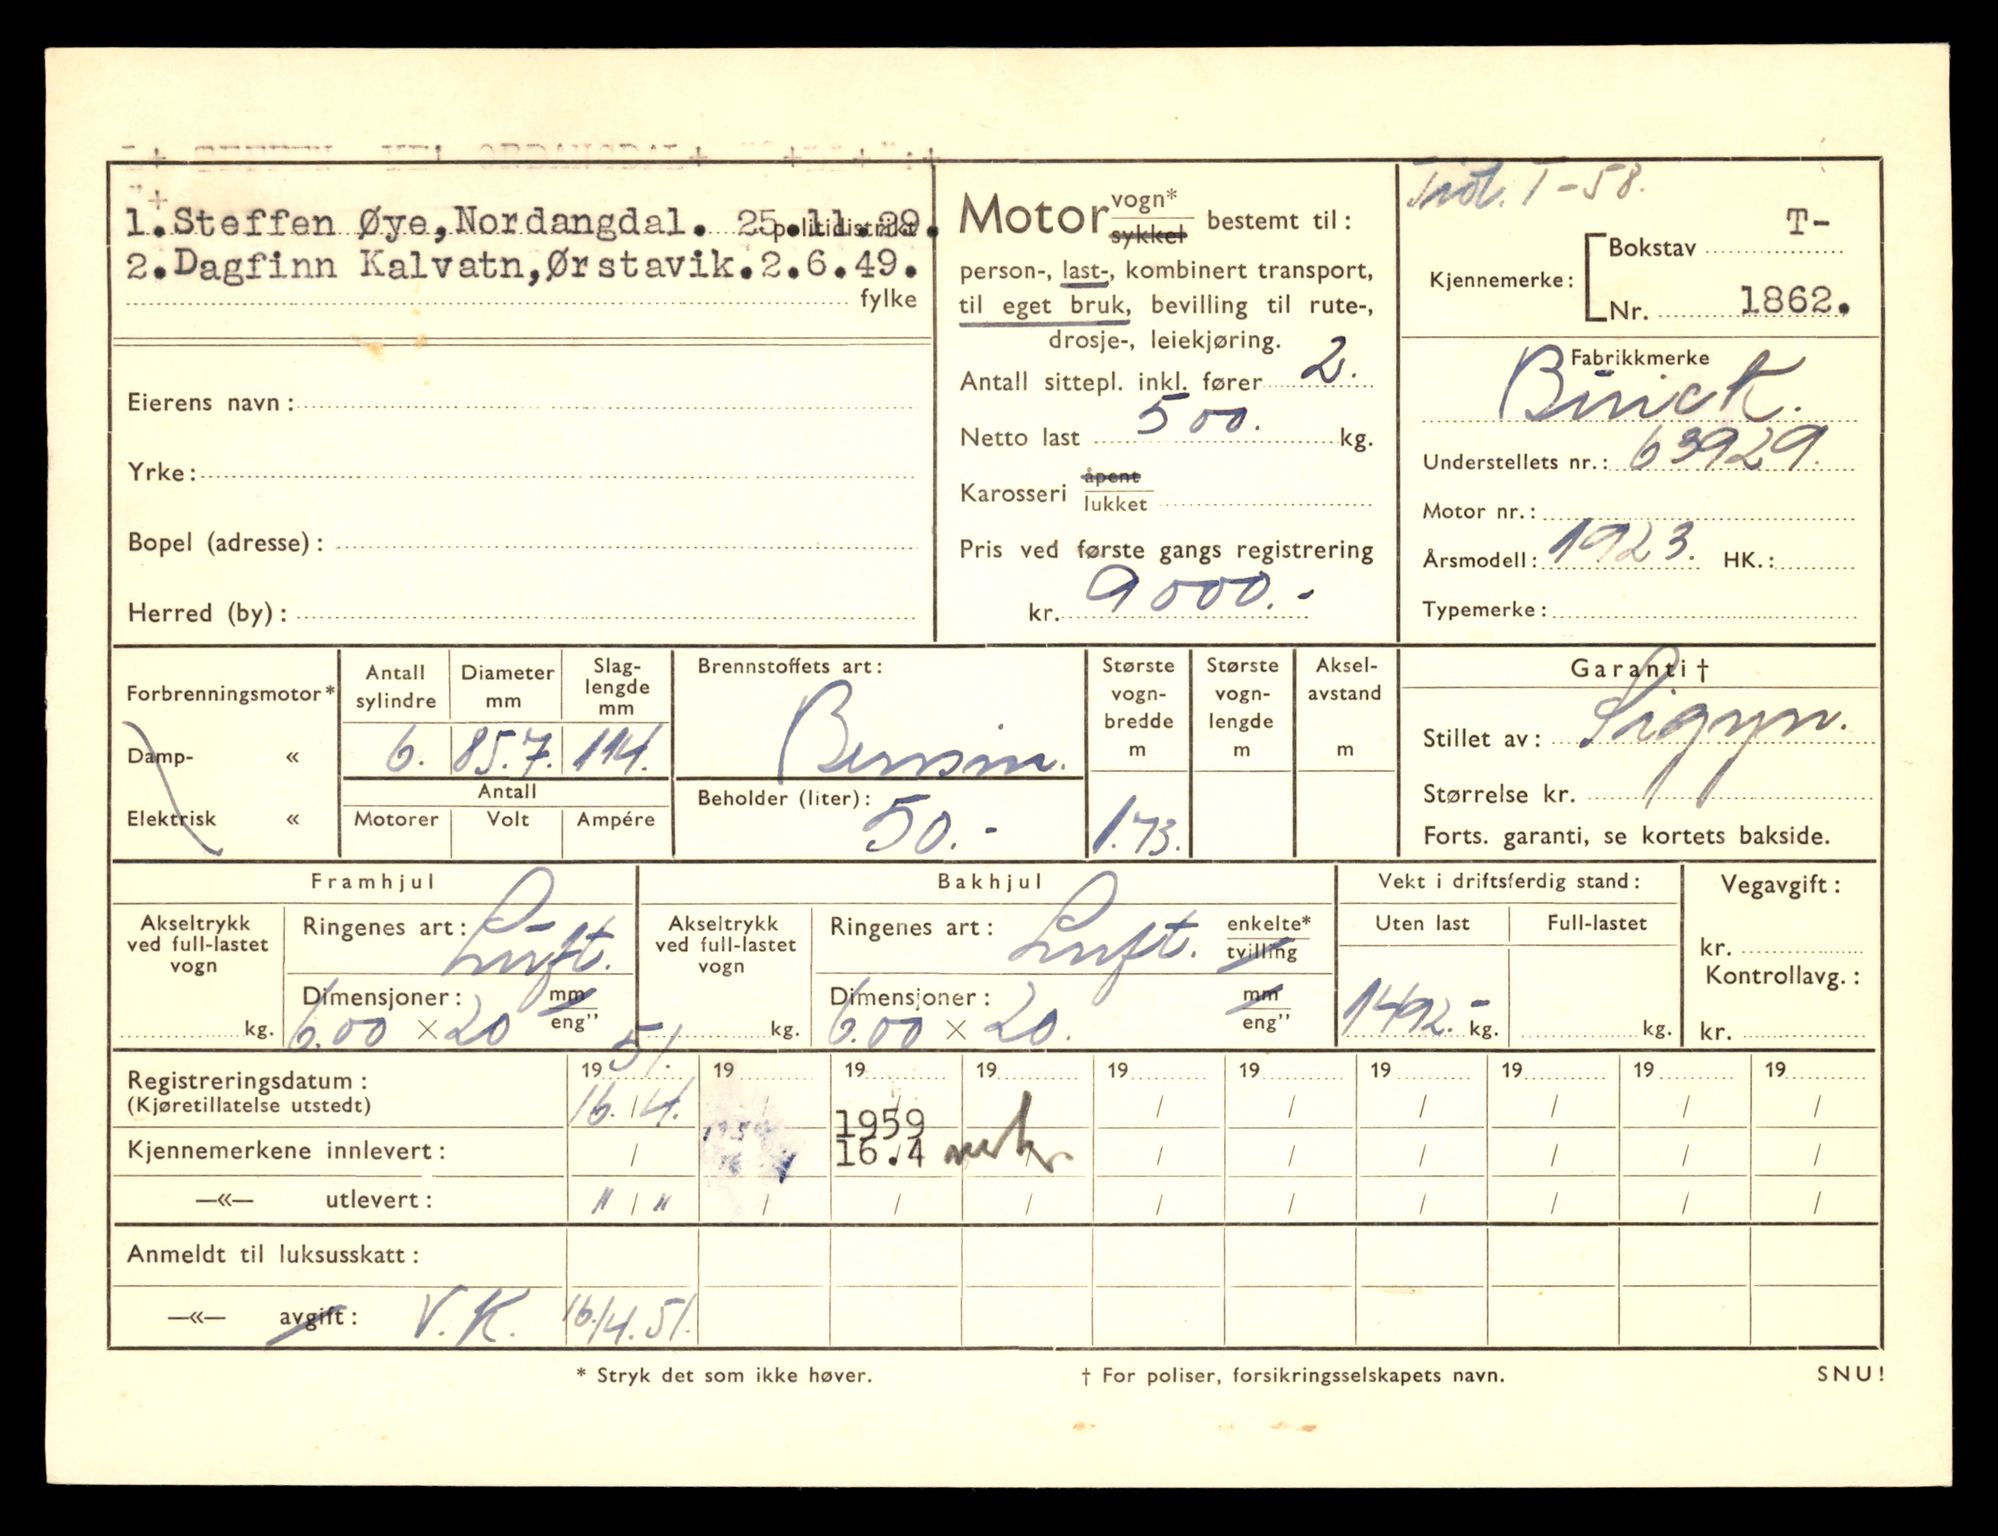 1. Steffen Øye, Nordangdal. 25.11.29. politidistrikt
2. Dagfinn Kalvatn, Ørstavik. 2.6.49.
fylke
Eierens navn :
Yrke :
Bopel (adresse) :
Herred (by) :
Motor vogn* sykkel bestemt til :
person-, last-, kombinert transport,
til eget bruk, bevilling til rute-,
drosje-, leiekjøring.
Antall sittepl. inkl. fører 2.
Netto last 500. kg.
Karosseri åpent lukket
Pris ved første gangs registrering
kr. 9000.-
T-58.
Kjennemerke : Bokstav T-
Nr. 1862.
Fabrikkmerke
Buick.
Understellets nr. : 63929.
Motor nr. :
Årsmodell : 1923. HK. :
Typemerke :
Forbrenningsmotor*
Damp- «
Elektrisk «
Antall sylindre
6.
Diameter mm
85.7.
Slag-lengde mm
114.
Antall
Motorer Volt Ampére
Brennstoffets art :
Bensin.
Beholder (liter) : 50.-
Største vogn-bredde m
1.73.
Største vogn-lengde m
Aksel-avstand m
Garanti †
Stillet av : Sigyn.
Størrelse kr.
Forts. garanti, se kortets bakside.
Framhjul
Akseltrykk ved full-lastet vogn
kg.
Ringenes art : Luft.
Dimensjoner : mm eng”
6.00 × 20
Bakhjul
Akseltrykk ved full-lastet vogn
kg.
Ringenes art : Luft. enkelte* tvilling
Dimensjoner : mm eng”
6.00 × 20.
Vekt i driftsferdig stand :
Uten last Full-lastet
1492.- kg. kg.
Vegavgift :
kr.
Kontrollavg. :
kr.
Registreringsdatum : 19 51. 19 19 19 19 19 19 19 19 19
(Kjøretillatelse utstedt) 16. / 4. / / / / / / / / /
1959
Kjennemerkene innlevert : / 16.4 / / / / / / /
—«— utlevert : " / " / / / / / / / / /
Anmeldt til luksusskatt :
—«— avgift : V.K. 16/4.51.
* Stryk det som ikke høver.
† For poliser, forsikringsselskapets navn.
SNU!